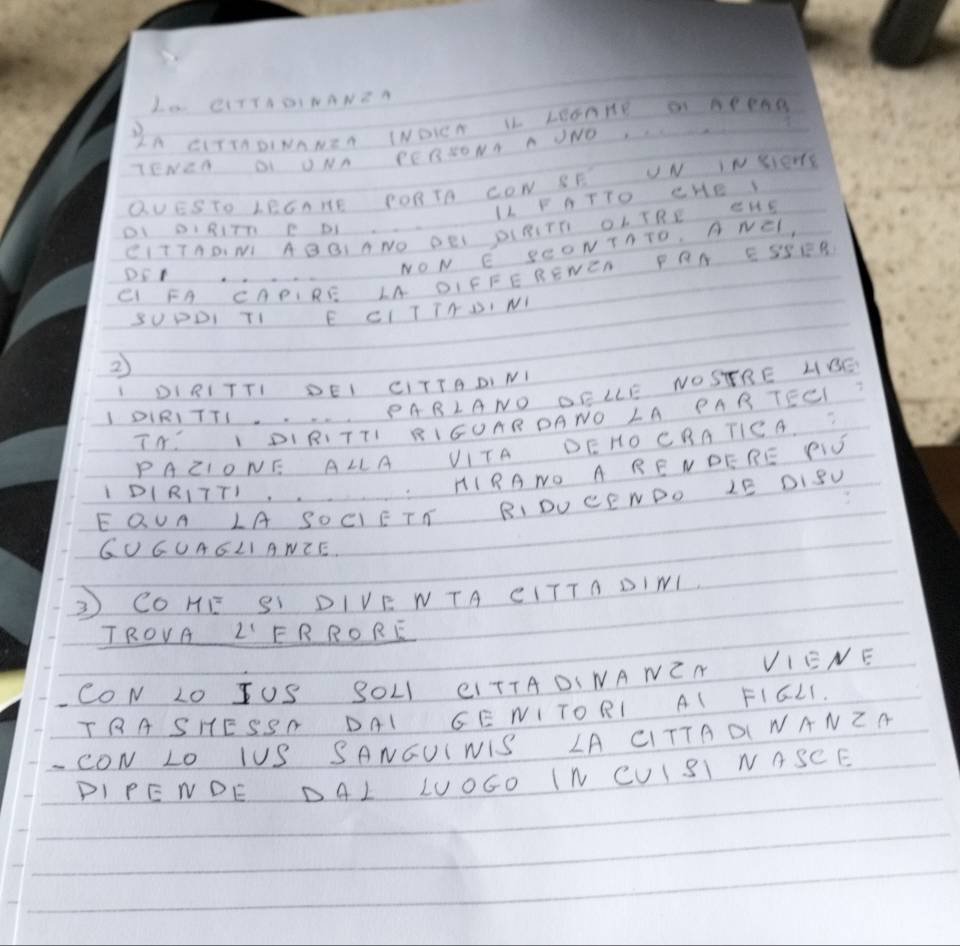 La CITTADINANZA
1)
LA CITTADINANZA INDICA IL LEGAME DI APPAR
TENZA DI UNA PERSONA A UNO . . . . . .
QUESTO LEGAME PORTA CON SE UN INSIEME
DI DIRITTI E DI . . . . . . IL FATTO CHE I
CITTADINI ABBIANO DEI DIRITTI OLTRE CHE
DEI . . . . . . NON E SCONTATO. ANZI,
CI FA CAPIRE LA DIFFERENZA FRA ESSER
SUDDITI E CITTADINI
2)
I DIRITTI DEI CITTADINI
I DIRITTI . . . . . PARLANO DELLE NOSTRE LIBE
TA'. I DIRITTI RIGUARDANO LA PARTECI
PAZIONE ALLA VITA DEMOCRATICA.
I DIRITTI . . . . . . MIRANO A RENDERE PIÚ
EQUA LA SOCIETÀ RIDUCENDO LE DISU
GUGUAGLIANZE.
3) COME SI DIVENTA CITTADINI.
TROVA L'ERRORE
- CON LO IUS SOLI CITTADINANZA VIENE
TRASMESSA DAI GENITORI AI FIGLI.
- CON LO IUS SANGUINIS LA CITTADINANZA
DIPENDE DAL LUOGO IN CUI SI NASCE